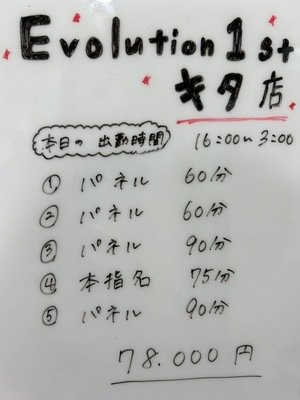 Evolution 1st
キタ店
本日の 出勤時間 16:00〜3:00
① パネル 60分
② パネル 60分
③ パネル 90分
④ 本指名 75分
⑤ パネル 90分
78.000円